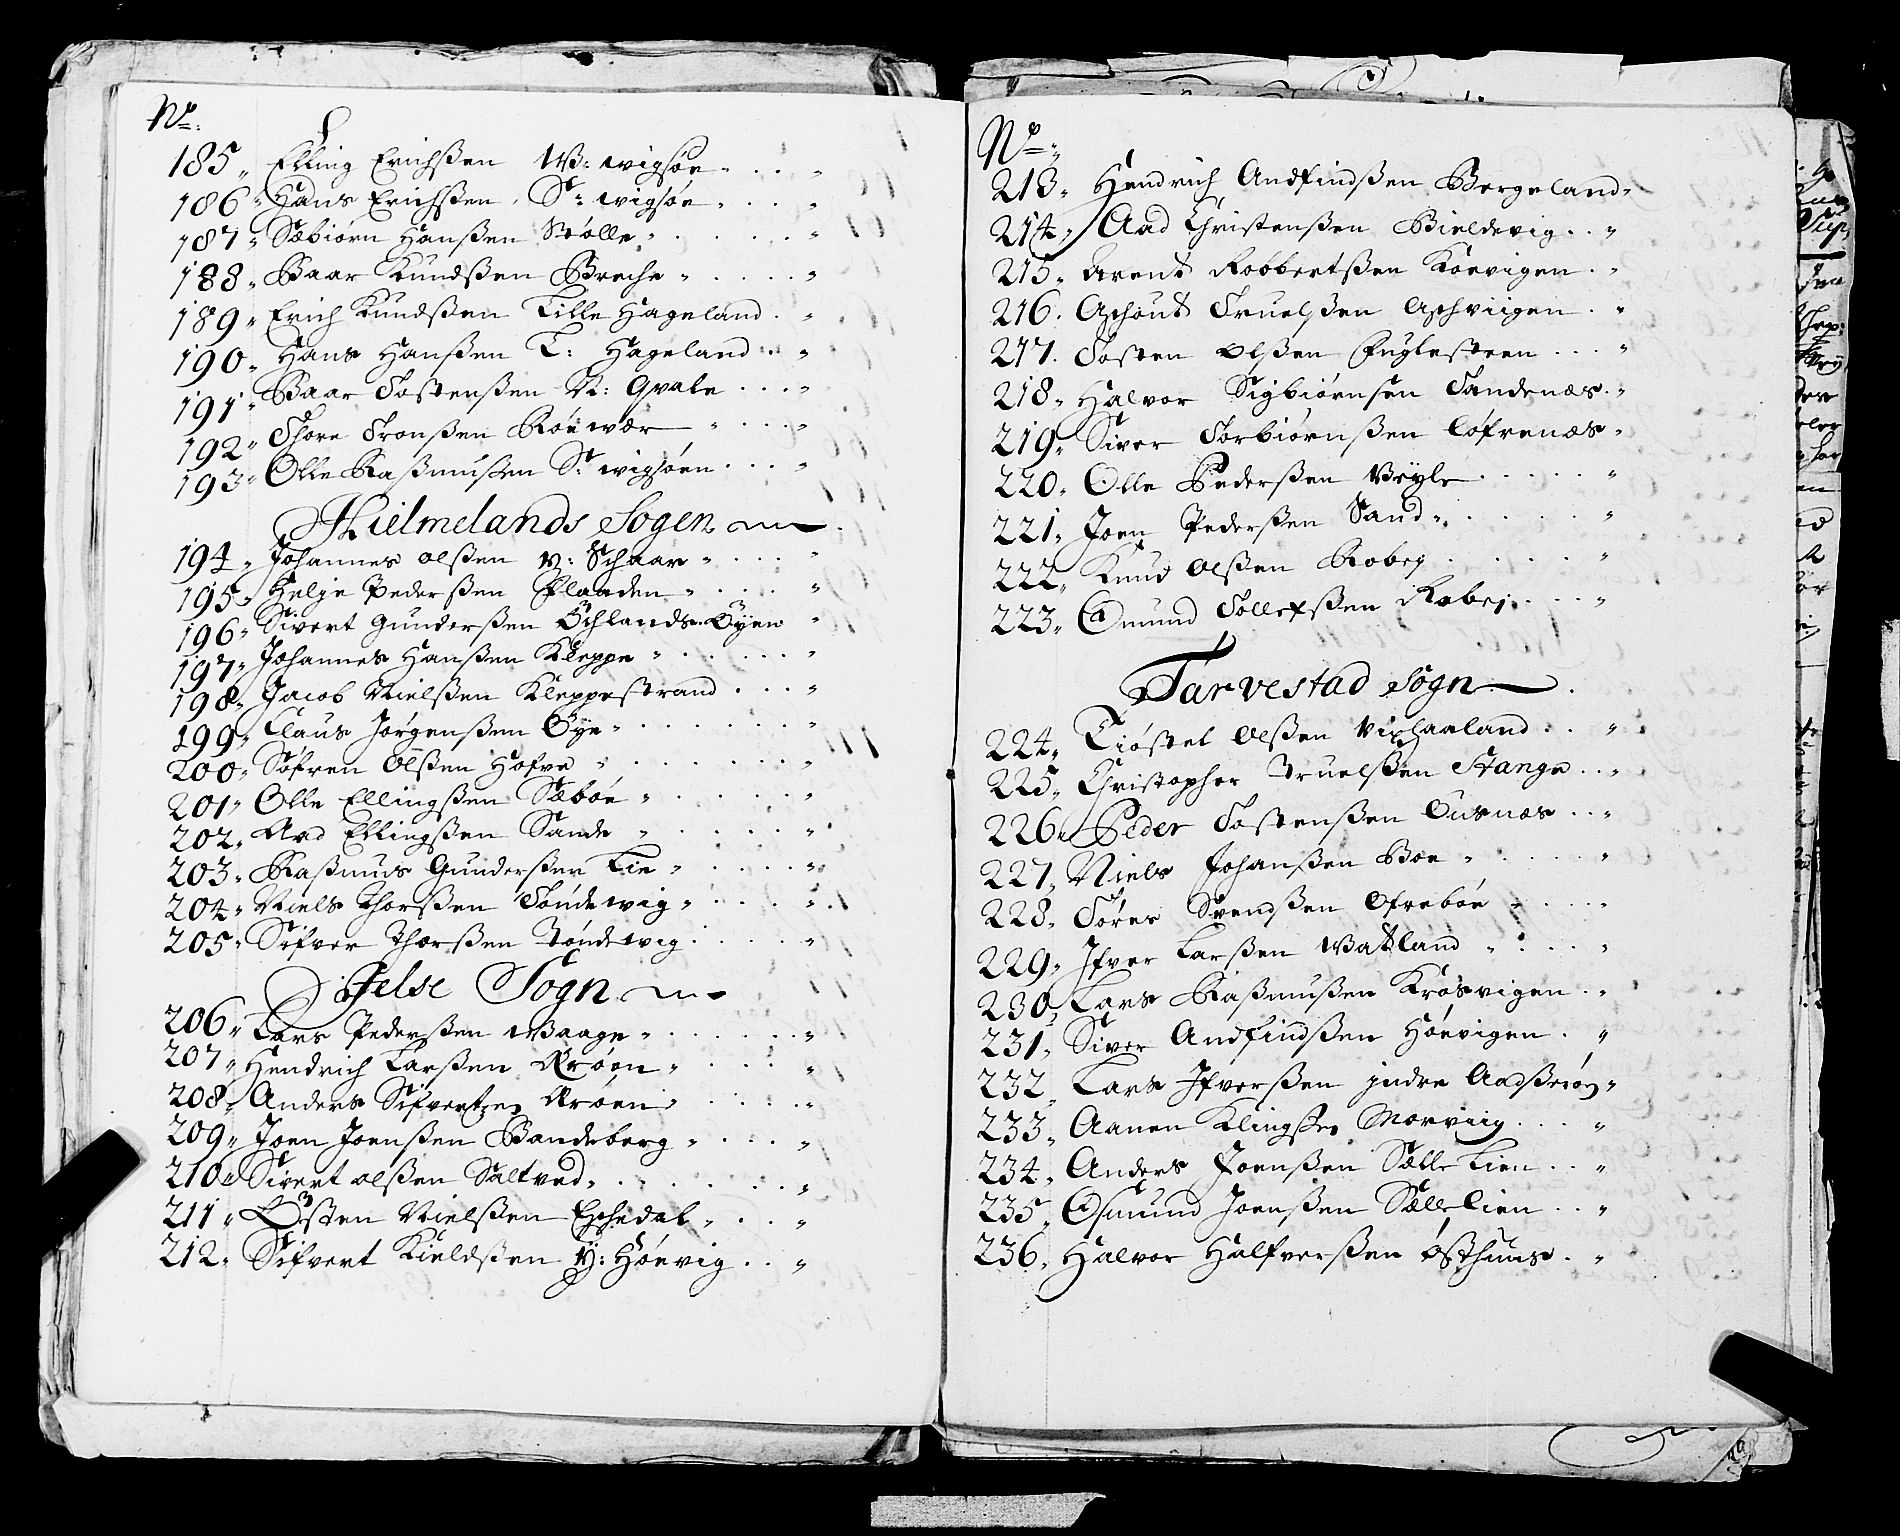 No:
185„ Elling Erichßen W: wigsøe
186„ Hans Erichßen S: wigsøe
187„ Sæbiørn Hanßen Stølle
188„ Baar Knudßen Breche
189„ Erich Knudßen Lille Hageland
190„ Hans Hanßen L: Hageland
191„ Baar Tostenßen N: Qvale
192„ Thore Tronßen Røewær
193„ Olle Raßmußen S: wigsøen
Hielmelands Sogen
194„ Johannes olßen y: Schaar
195„ Helge Pederßen Flaaden
196„ Sivert Gunderßen Øchlands Øyen
197„ Johannes Hanßen Kleppe
198„ Jacob Nielßen Kleppestrand
199„ Claus Jørgenßen Øye
200„ Søfren Olßen Hofve
201„ Olle Ellingßen Sæbøe
202„ Aad Ellingßen Sande
203„ Raßmus Gunderßen Lie
204„ Niels Thorßen Tøndewig
205„ Sifver Thorßen Tøndewig
Jelse Sogn
206„ Lars Pederßen Waage
207„ Hendrich Larßen Krøen
208„ Anders Sifvertzen Krøen
209„ Joen Joenßen Bandeberg
210„ Sivert olßen Saltved
211„ Østen Nielßen Eschedal
212„ Sifvert Kieldßen Y: Høevig
No:
213„ Hendrich Andfindßen Bergeland
214„ Aad Christenßen Bieldevig
215„ Arent Robbertßen Koevigen
216. Aschout Truelßen Aschviigen
217. Tosten olßen Fuglesteen
218„ Halvor Sigbiørnsen Sandenæs
219„ Siver Torbiørnßen Løfrenæs
220„ Olle Pederßen Vryle
221„ Joen Pederßen Sand
222„ Knud Olßen Robey
223„ Omund Tollefßen Robej
Tarvestad Sogn
224„ Tiøstel Olßen Vixhaaland
225„ Christopher Truelßen Stange
226„ Peder Tostenßen Ousnæs
227„ Niels Johanßen Boe
228„ Søren Svendßen Ofrebøe
229„ Ifver Larßen Watland
230„ Lars Raßmußen Krøsvigen
231„ Siver Andfindßen Høevigen
232„ Lars Ifverßen jndre Aadßerøy
233„ Aanen Klingßen Morviig
234„ Anders Joenßen Sælle Lien
235„ Osmund Joenßen Sælle Lien
236„ Halvor Halfverßen østhuus